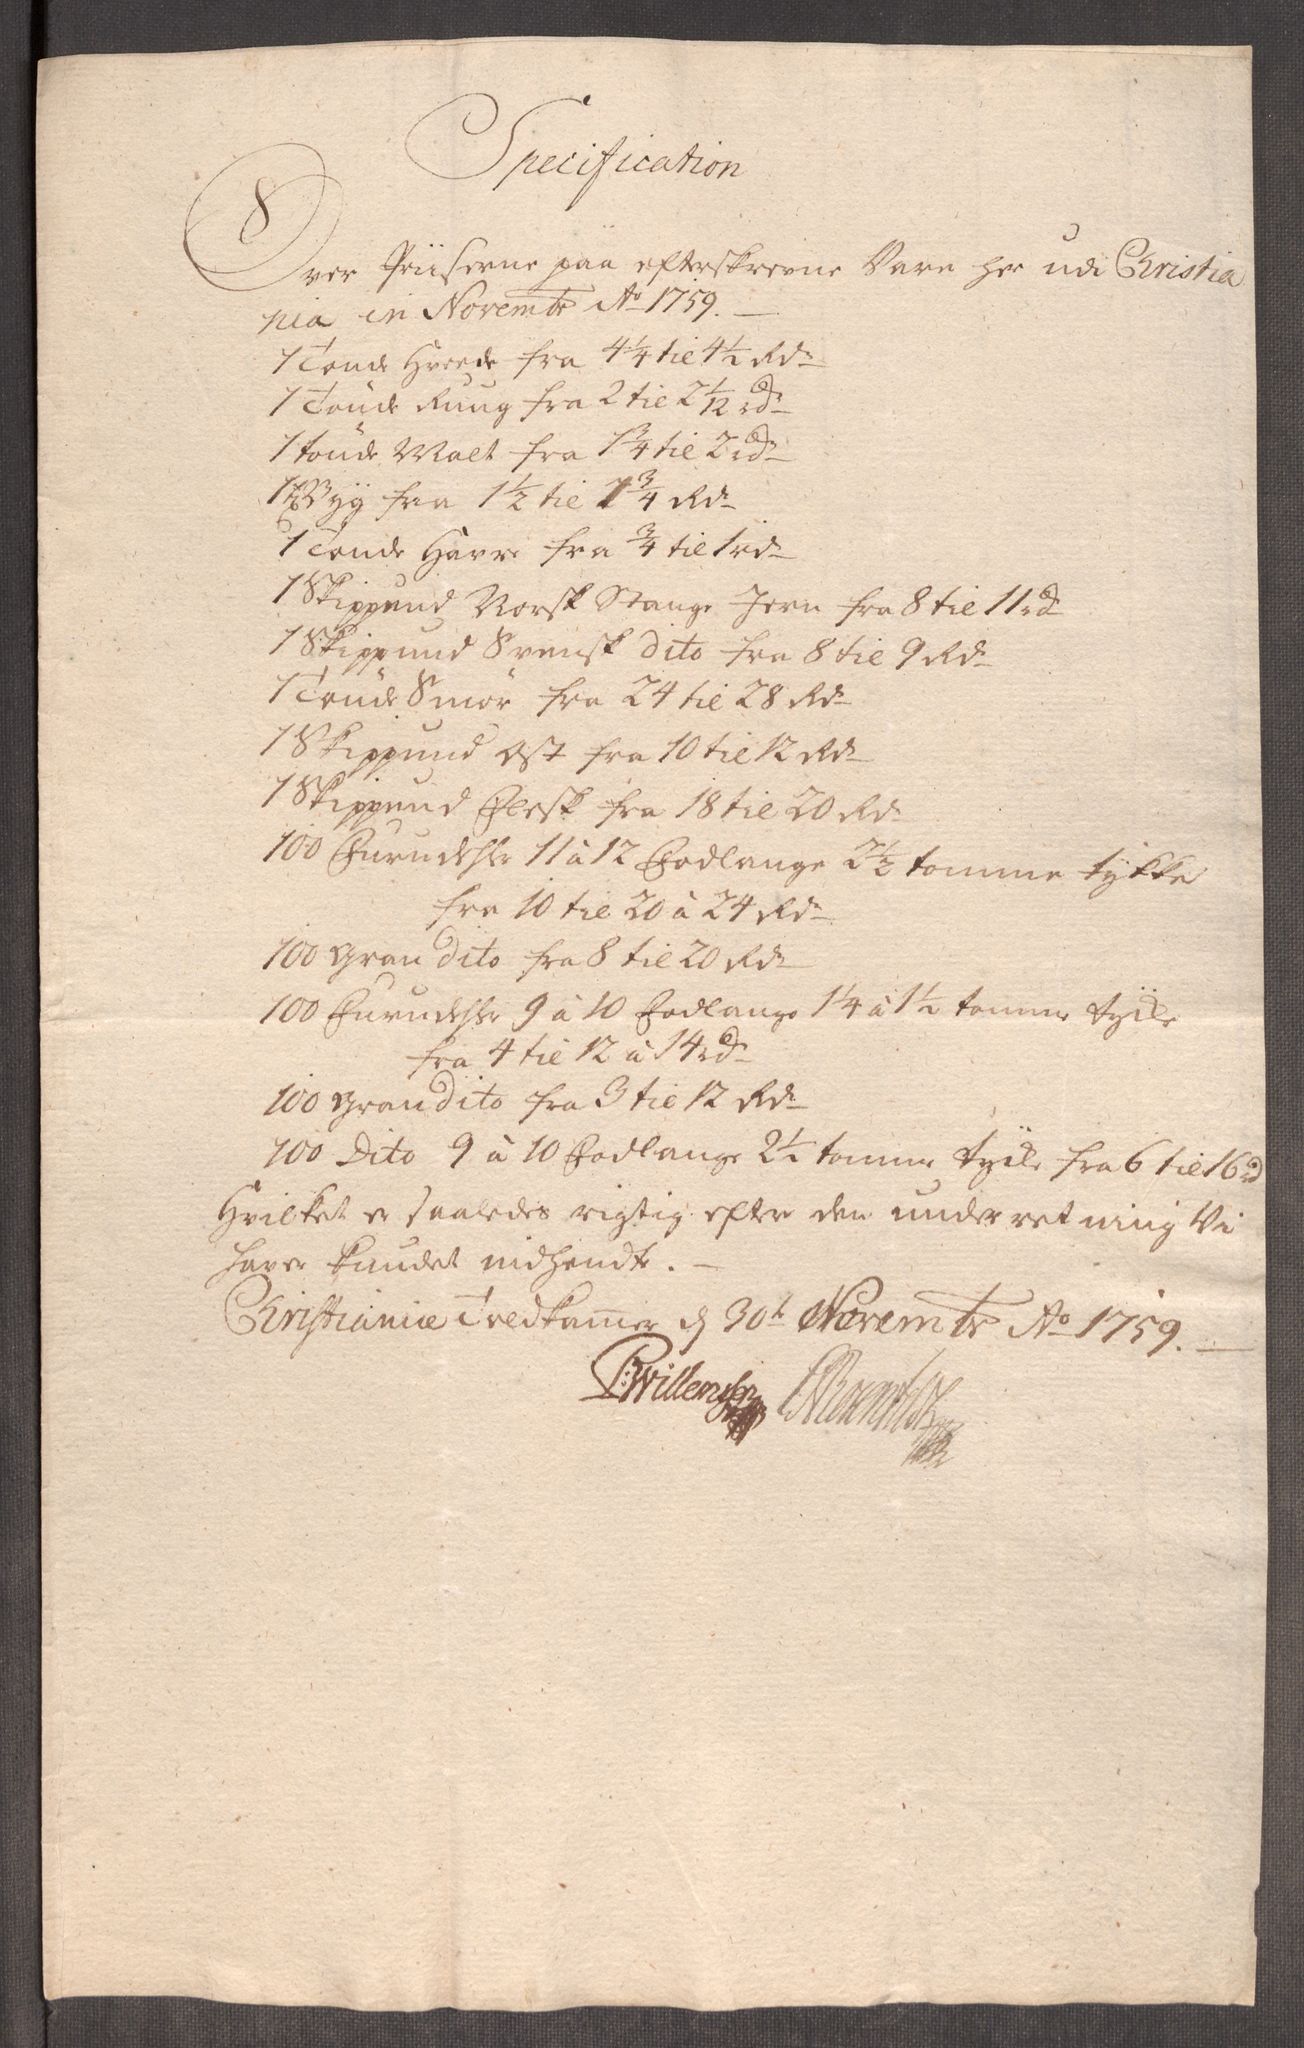 Specification
Over Priiserne paa efterskrevne Vare her udi Christia
nia in Novembr Ao 1759. —
1 Tønde Hvede fra 4¼ til 4½ Rd
1 Tønde Ruug fra 2 til 2 1/12 rd
1 tønde Malt fra 1¾ til 2 rd
1 Byg fra 1½ til 1¾ Rd
1 Tønde Havre fra ¾ til 1 rd
1 Skippund Norsk Stange Jern fra 8 til 11 rd
1 Skippund Svensk dito fra 8 til 9 Rd
1 Tønde Smør fra 24 til 28 Rd
1 Skippund Ost fra 10 til 12 Rd
1 Skippund Flesk fra 18 til 20 Rd
100 Furudehler 11 à 12 Fodlange 2½ tomme tykke
fra 10 til 20 à 24 Rd
100 Gran dito fra 8 til 20 Rd
100 Furudehler 9 à 10 Fodlange 1¼ à 1½ tomme
fra 4 til 12 à 14 rd
100 Gran dito fra 3 til 12 Rd
100 Dito 9 à 10 Fodlange 2½ tomme fra 6 til 16 rd
Hvilket er saaledes rigtig efter den underretning Vi
haver kundet indhendte. —
Christianiæ d 30t Novembr Ao 1759. —
P: Willemsen